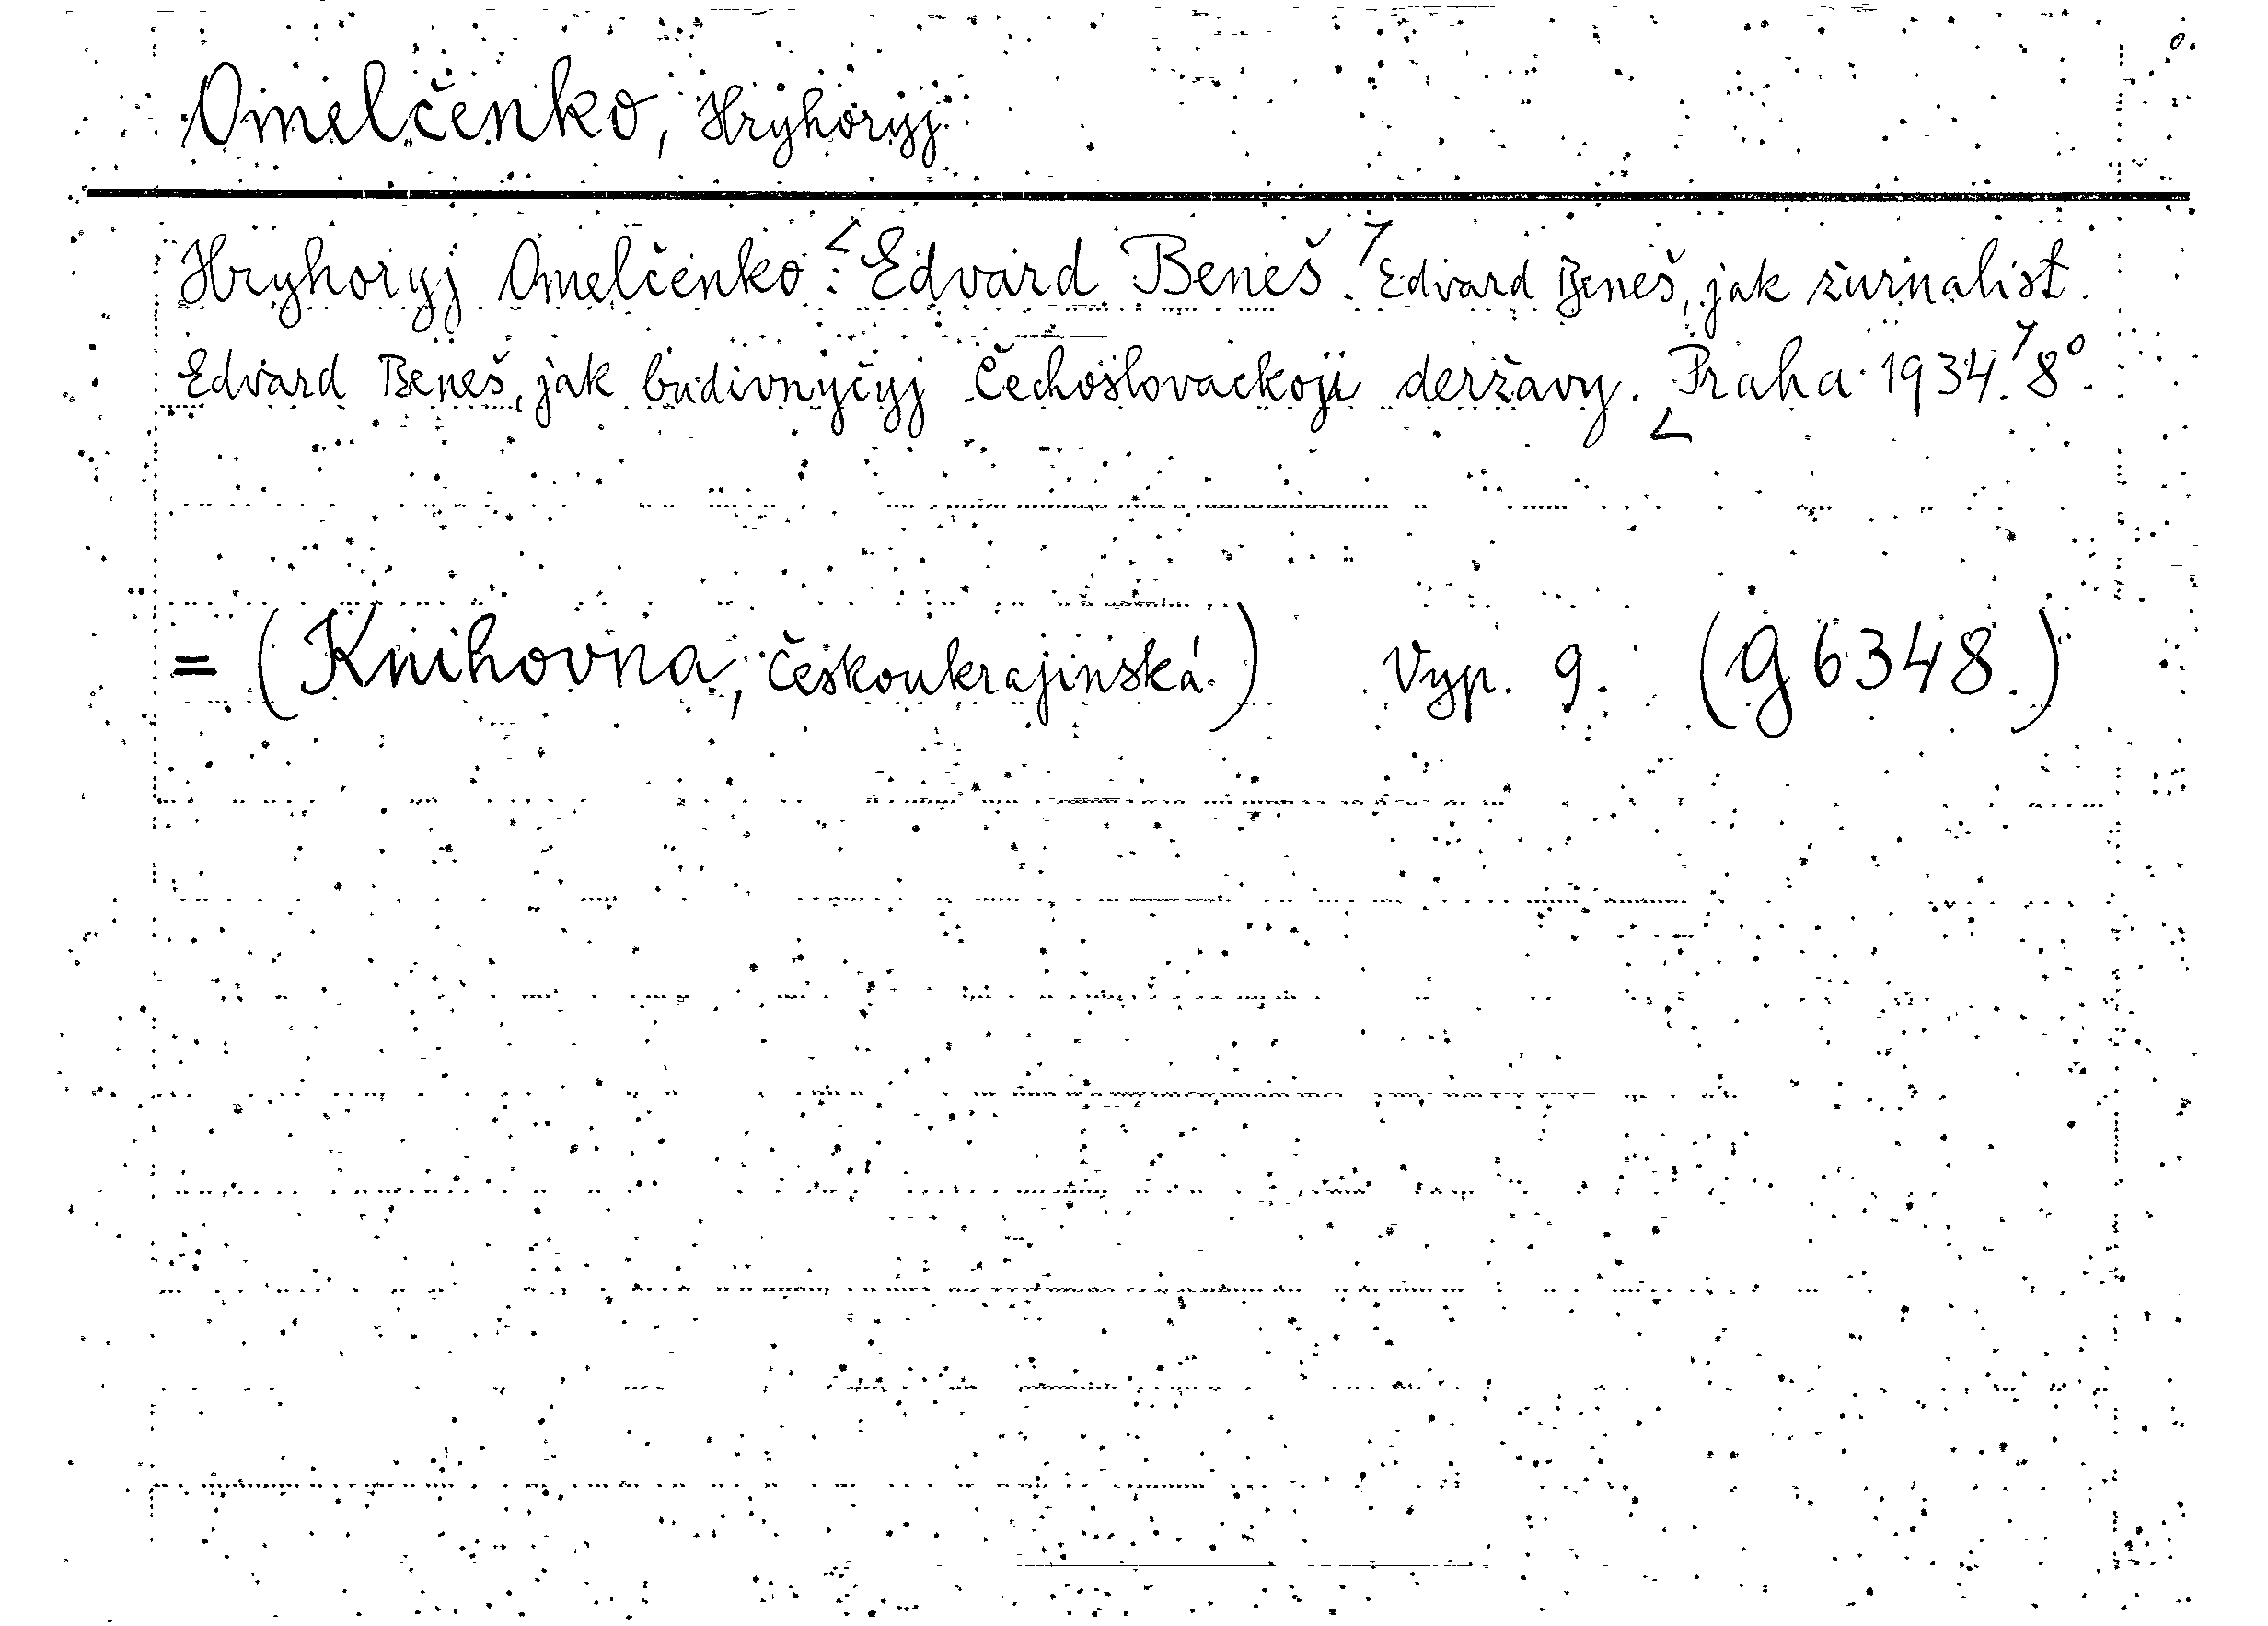 o.
Omelčenko, Hryhoryj
Hryhoryj Omelčenko: <Edvard Beneš.> Edvard Beneš, jak žurnalist.
Edvard Beneš, jak budivnyčyj Čechoslovackoji deržavy. <Praha 1934.> 8°.
= (Knihovna, Českoukrajinská) Vyp. 9. (g 6348.)